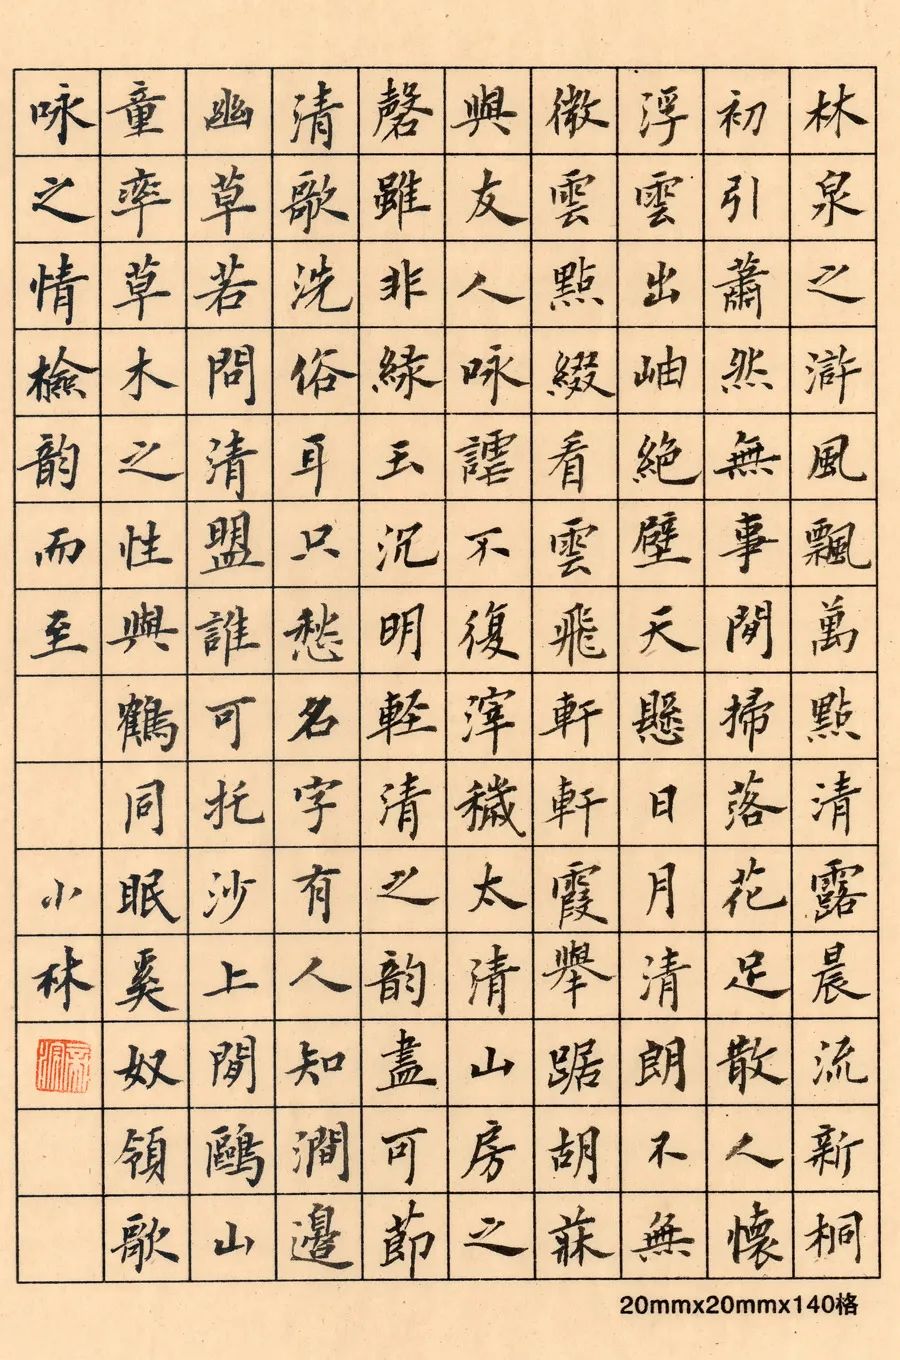 林泉之滸風飄萬點清露晨流新桐
初引蕭然無事閒掃落花足散人懷
浮雲出岫絶壁天懸日月清朗不無
微雲點綴看雲飛軒軒霞舉踞胡牀
與友人咏謔不復滓穢太清山房之
磬雖非緑玉沉明輕清之韵盡可節
清歌洗俗耳只愁名字有人知澗邊
幽草若問清盟誰可托沙上閒鷗山
童率草木之性與鶴同眠奚奴領歌
咏之情檢韵而至
小林
20mmx20mmx140格